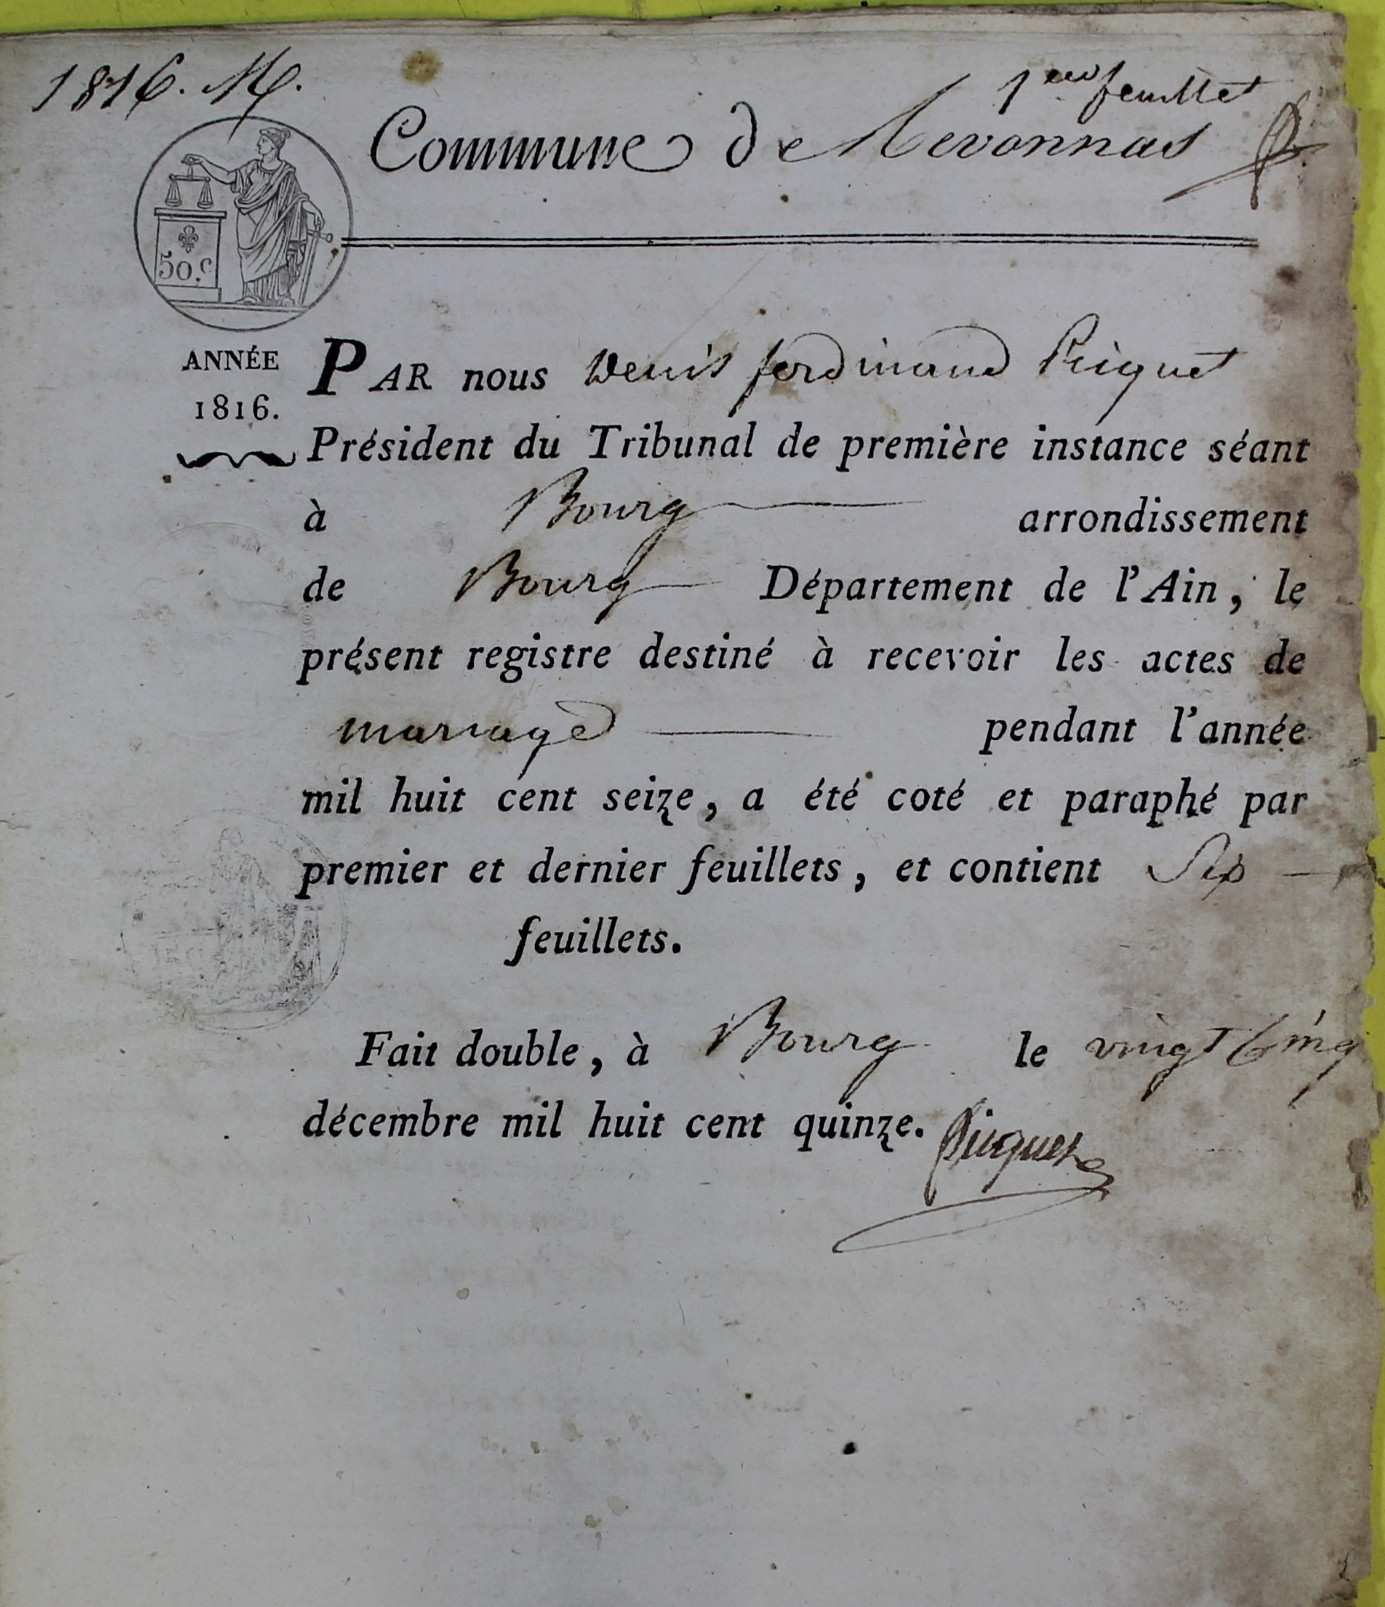 1816. M.
1er feuillet
Commune de Revonnas
50.c
ANNÉE
1816.
PAR nous Denis ferdinand Picquet
Président du Tribunal de première instance séant
à Bourg arrondissement
de Bourg Département de l'Ain, le
présent registre destiné à recevoir les actes de
mariage pendant l'année
mil huit cent seize, a été coté et paraphé par
premier et dernier feuillets, et contient Six
feuillets.
Fait double, à Bourg le vingt Cinq
décembre mil huit cent quinze.
Picquet